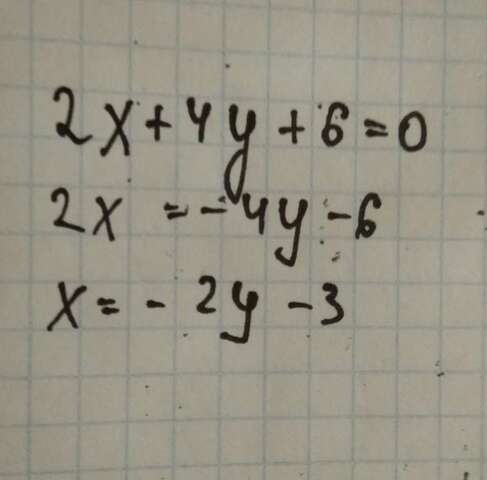 2x+4y+6=0
2x =-4y-6
x=-2y-3